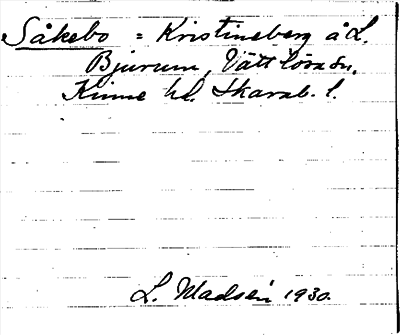 Såkebo = Kristineberg å L.
Bjurum, Vättlösa sn.
Kinne hd. Skarab. l.
L. Madsén 1930.